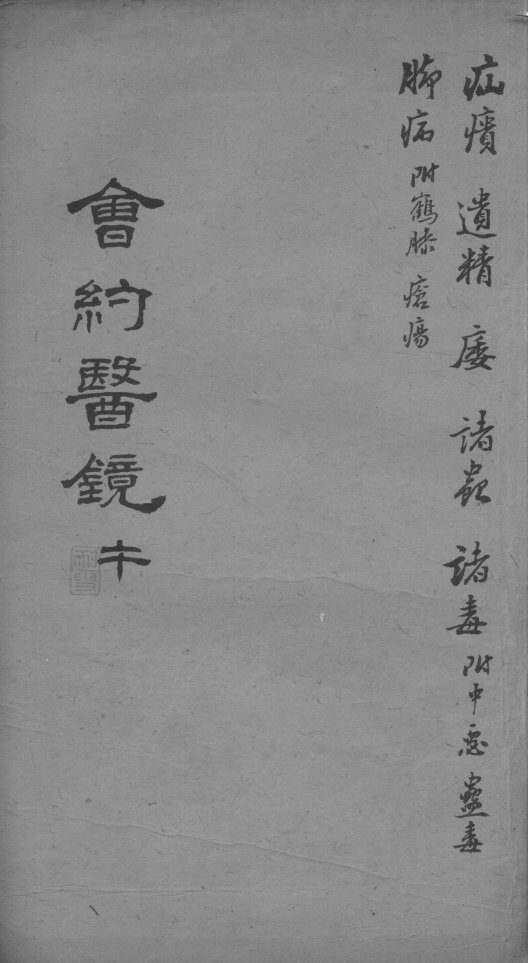 疝㿉 遺精 痿 諸蟲 諸毒 附中惡 蠱毒
脚病 附鶴膝 瘡瘍
會約醫鏡 午